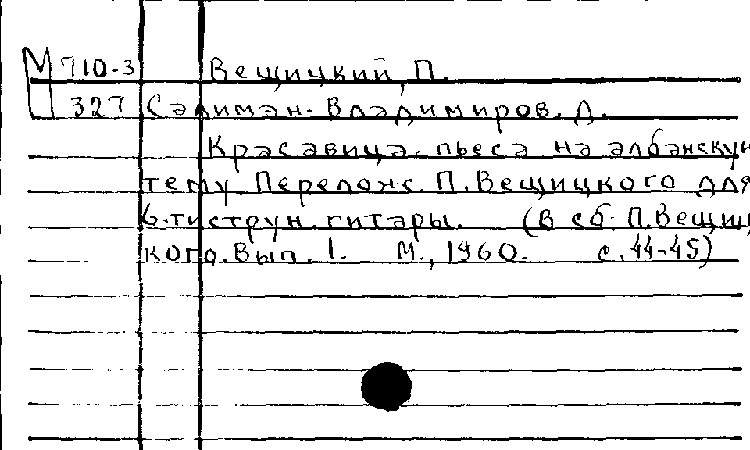 М 710-3 Вещицкий, П.
327 Салиман-Владимиров, Д.
Красавица. пьеса на албанскую
тему Перелож. П. Вещицкого для
6-тиструн. гитары. (В сб. П. Вещиц
кого. Вып. 1. М., 1960. с. 44-45)